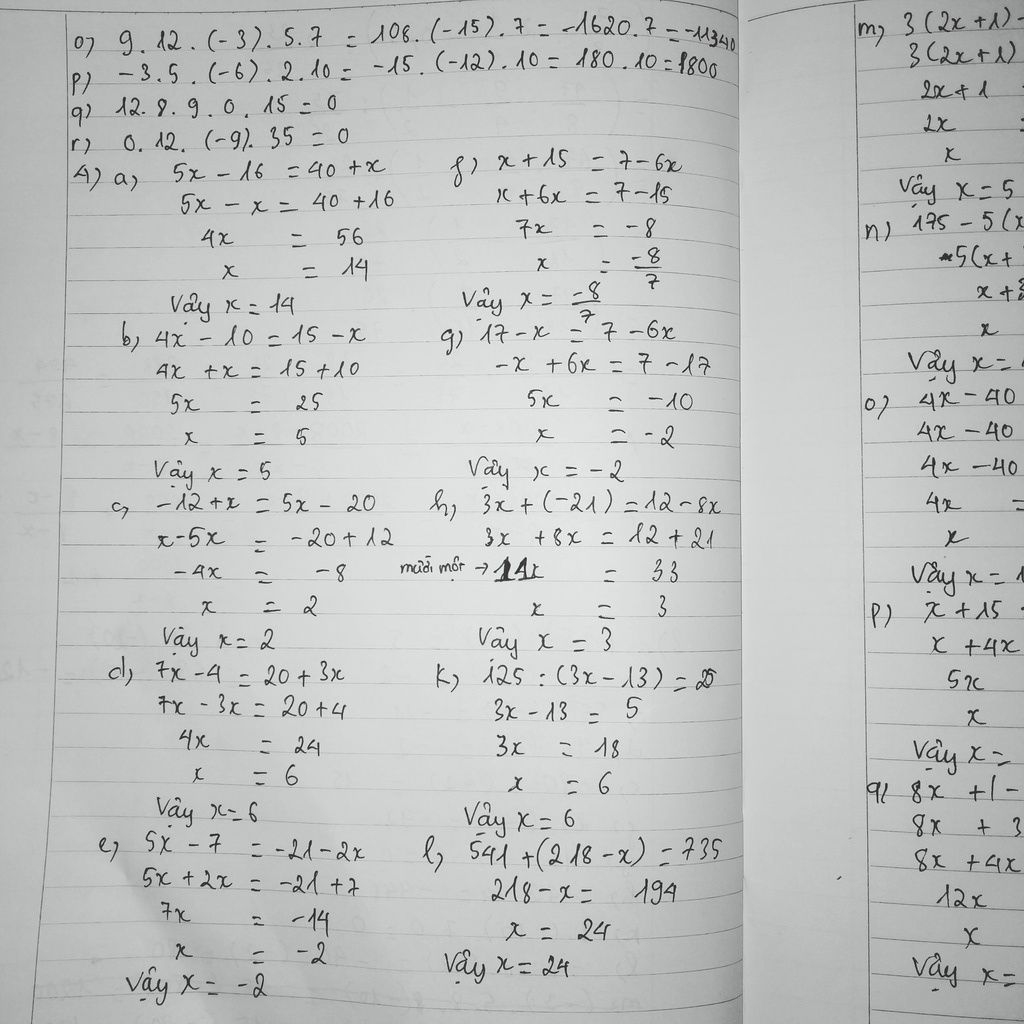 o) 9.12.(-3).5.7 = 108.(-15).7 = -1620.7 = -11340
p) -3.5.(-6).2.10 = -15.(-12).10 = 180.10 = 1800
q) 12.8.9.0.15 = 0
r) 0.12.(-9).35 = 0
4) a) 5x - 16 = 40 + x
5x - x = 40 + 16
4x = 56
x = 14
Vậy x = 14
b) 4x - 10 = 15 - x
4x + x = 15 + 10
5x = 25
x = 5
Vậy x = 5
c) -12 + x = 5x - 20
x - 5x = -20 + 12
-4x = -8
x = 2
Vậy x = 2
d) 7x - 4 = 20 + 3x
7x - 3x = 20 + 4
4x = 24
x = 6
Vậy x = 6
e) 5x - 7 = -21 - 2x
5x + 2x = -21 + 7
7x = -14
x = -2
Vậy x = -2
f) x + 15 = 7 - 6x
x + 6x = 7 - 15
7x = -8
x = -8/7
Vậy x = -8/7
g) 17 - x = 7 - 6x
-x + 6x = 7 - 17
5x = -10
x = -2
Vậy x = -2
h) 3x + (-21) = 12 - 8x
3x + 8x = 12 + 21
mười một → 11x = 33
x = 3
Vậy x = 3
k) 125 : (3x - 13) = 25
3x - 13 = 5
3x = 18
x = 6
Vậy x = 6
l) 541 + (218 - x) = 735
218 - x = 194
x = 24
Vậy x = 24
m) 3(2x+1) -
3(2x+1)
2x + 1 =
2x =
x
Vậy x = 5
n) 175 - 5(x
-5(x +
x +
x
Vậy x =
o) 4x - 40
4x - 40
4x - 40
4x =
x
Vậy x = 1
p) x + 15
x + 4x
5x
x
Vậy x =
q) 8x + | -
8x + 3
8x + 4x
12x
x
Vậy x =